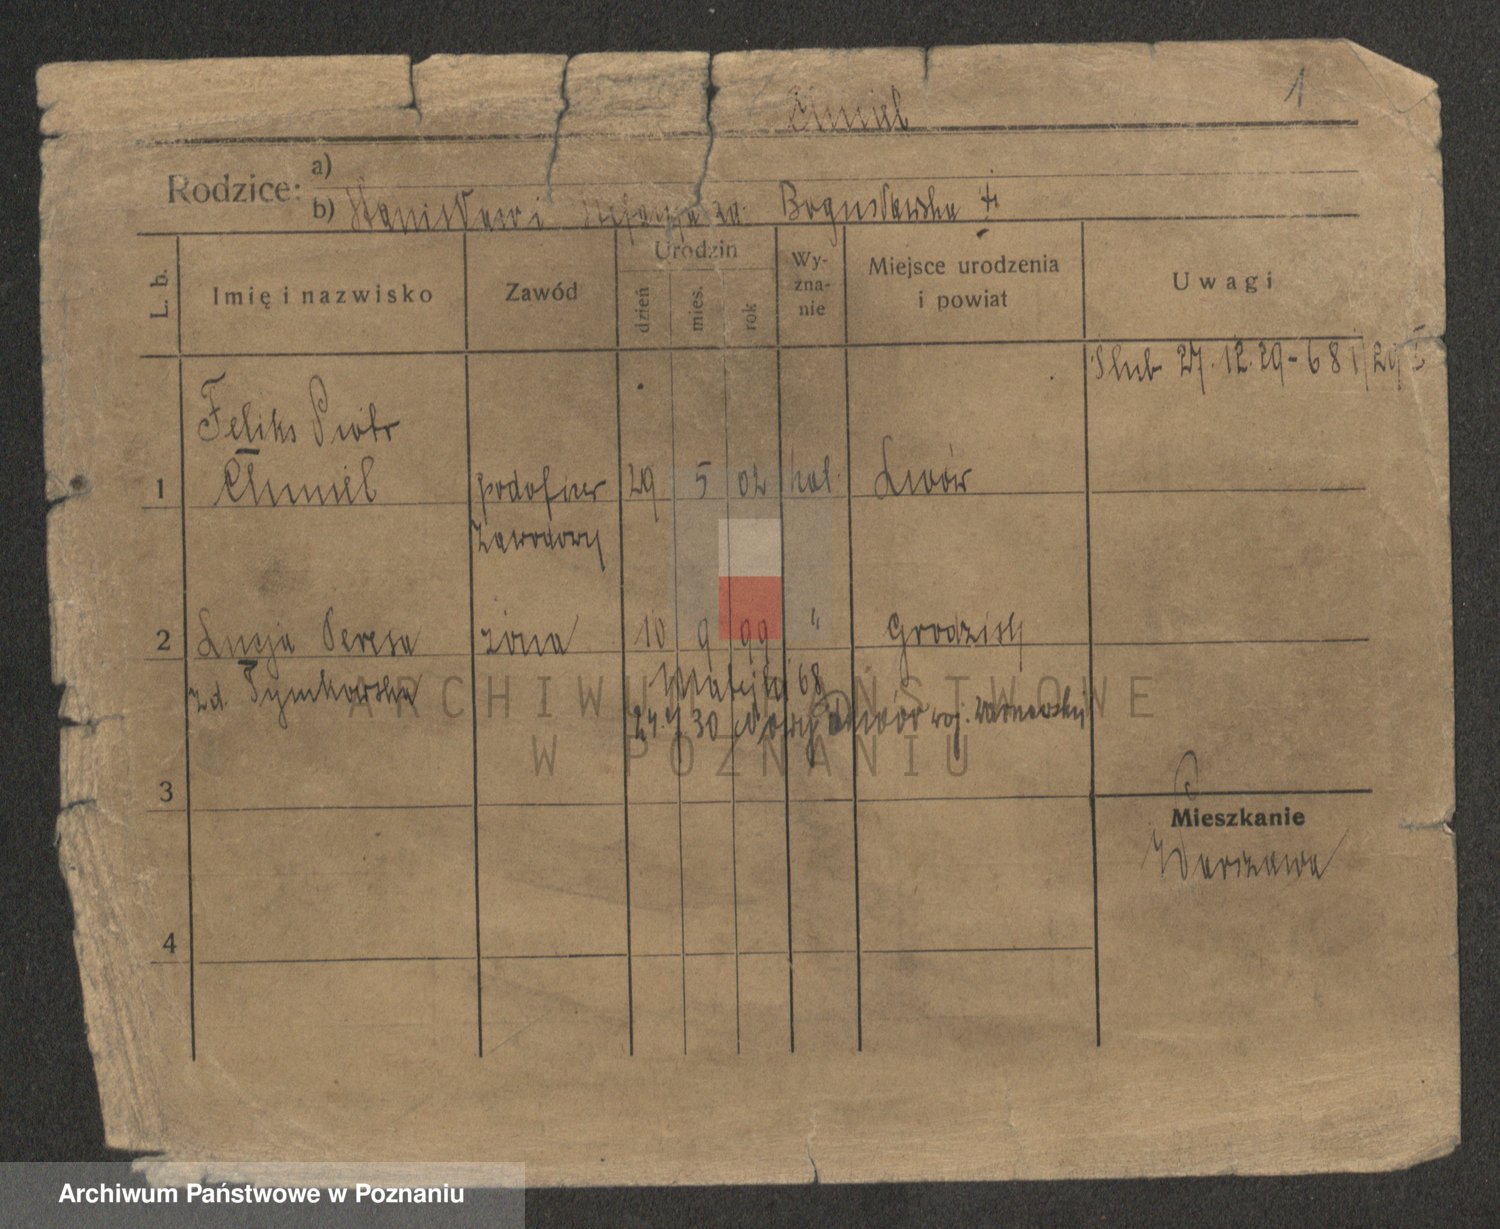 1
Chmiel
Rodzice:
a)
b) Stanisław i zd. Bogusławska
L. b.
Imię i nazwisko
Zawód
Urodzin
dzień
mies.
rok
Wy-
zna-
nie
Miejsce urodzenia
i powiat
Uwagi
Ślub 27.12.29 - 681/29
Feliks Piotr
1 Chmiel podoficer 29 5 02 kat. Lwów
zawodowy
2 Łucja Teresa żona 10 9 99 " Grodzisk
zd. Szymkowska Matejki 68
24. 30 Nowy Dwór
ARCHIWUM PAŃSTWOWE
W POZNANIU
3
Mieszkanie
Warszawa
4
Archiwum Państwowe w Poznaniu